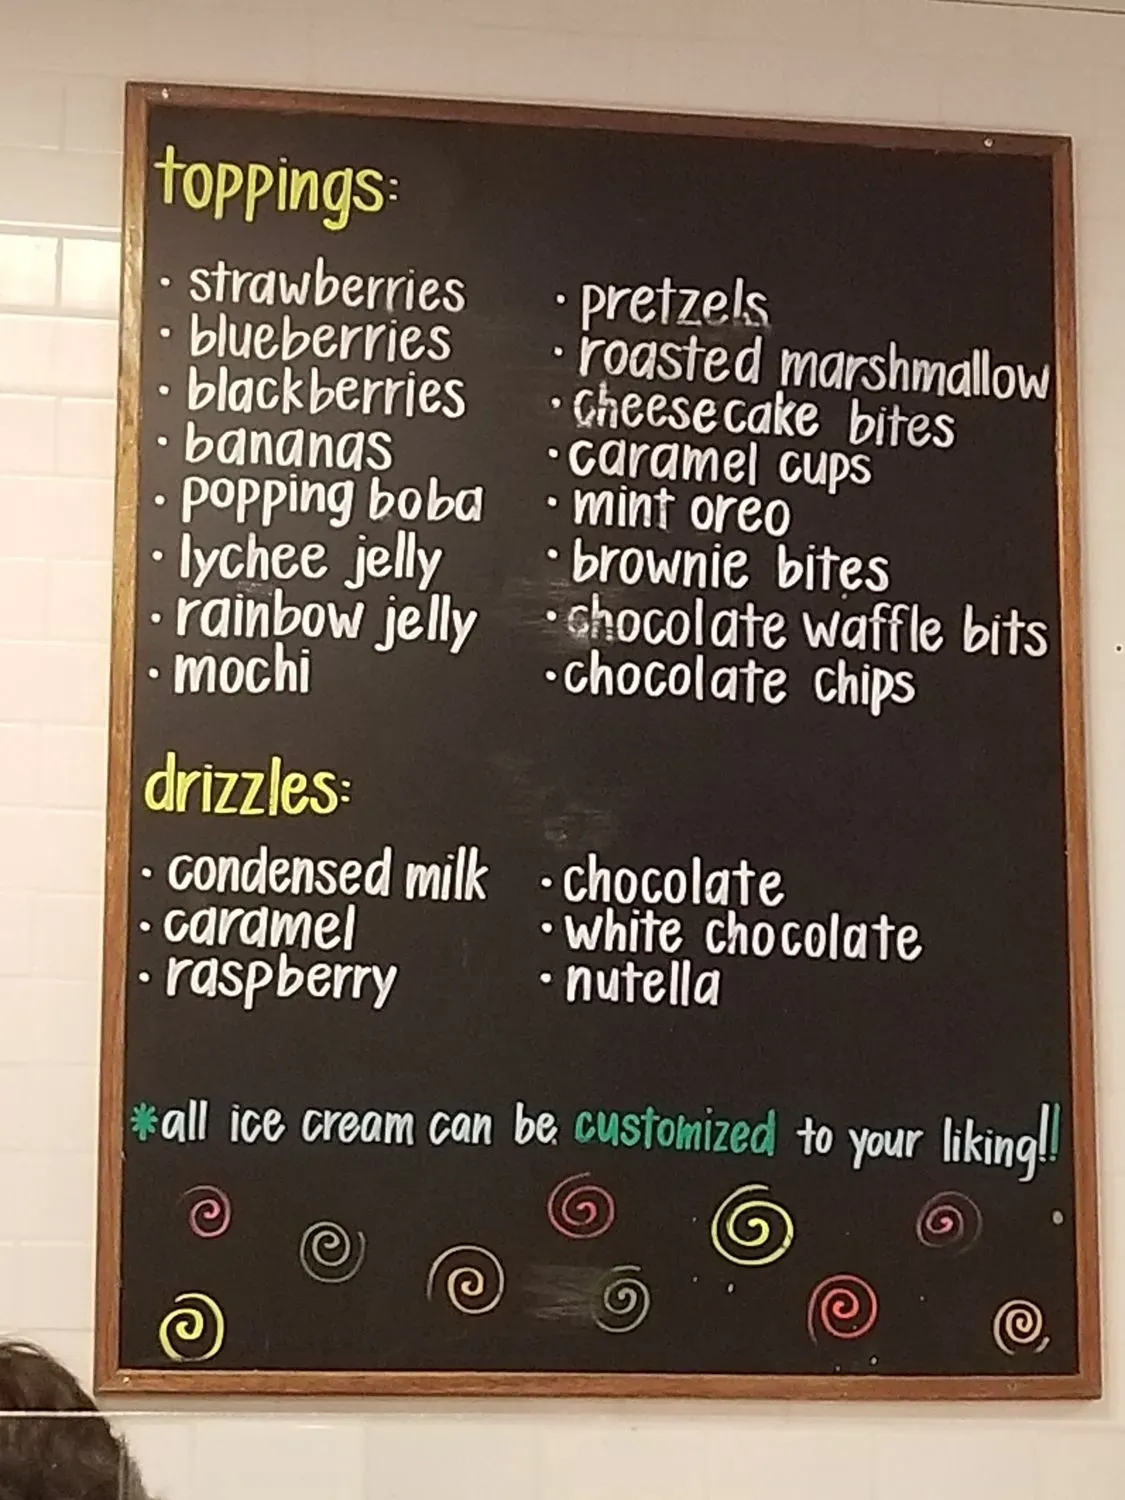 toppings:
· strawberries
· blueberries
· blackberries
· bananas
· popping boba
· lychee jelly
· rainbow jelly
· mochi
· pretzels
· roasted marshmallow
· cheesecake bites
· caramel cups
· mint oreo
· brownie bites
· chocolate waffle bits
· chocolate chips
drizzles:
· condensed milk
· caramel
· raspberry
· chocolate
· white chocolate
· nutella
*all ice cream can be customized to your liking!!